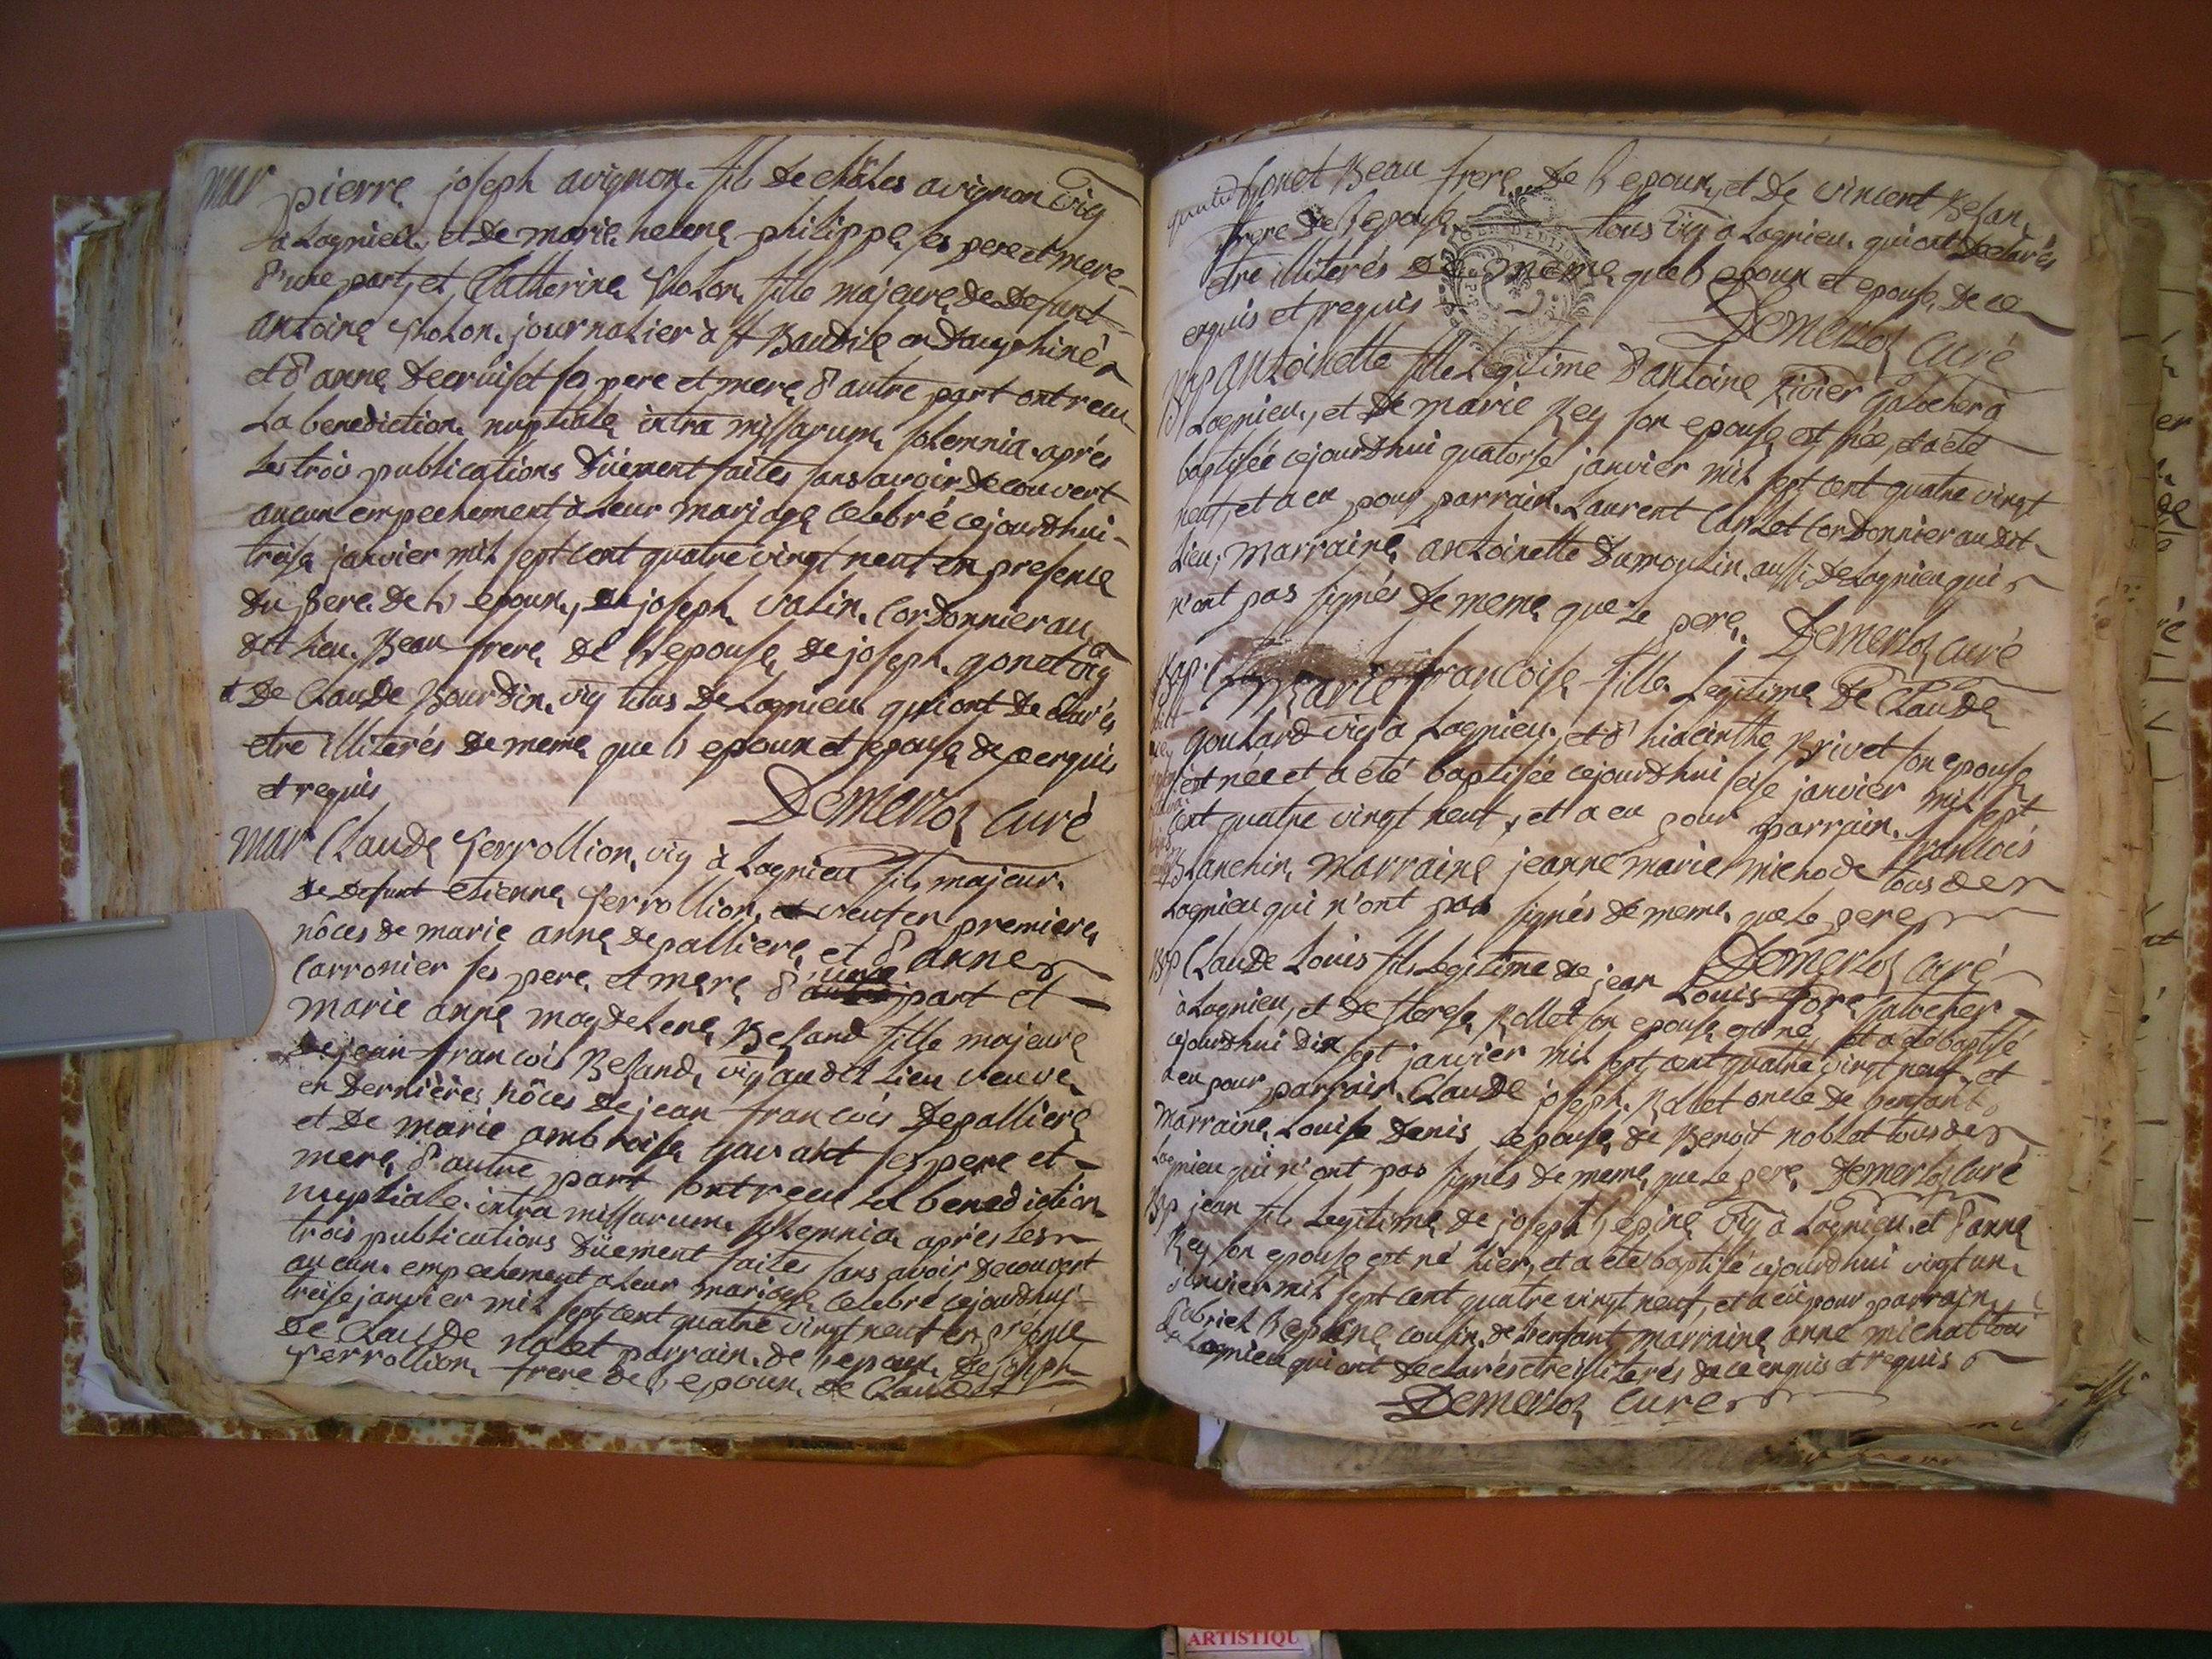 mar pierre joseph avignon fils de chales avignon vig
à Lagnieu, et de marie helene philippe, ses pere et mere
d'une part, et Catherine fille majeure de defunt
antoine journalier à St Baudile en dauphiné
et d'anne ses pere et mere d'autre part ont reçu
La benediction nuptiale intra missarum solemnia après
Les trois publications düement faites sans avoir decouvert
aucun empechement à Leur mariage Celebré cejourdhui
treise janvier mil sept cent quatre vingt neuf en presence
du pere de l'epoux, joseph vatin Cordonnier au
dit lieu Beau frere de l'epouse de joseph gonet vig
et de Claude Bourdin vig tous de Lagnieu qui ont declarés
etre illiterés de meme que l'epoux et epouse de ce enquis
et requis
Demerloz Curé
mar Claude ferrollion vig à Lagnieu fils majeur
de defunt etienne ferrollion, et veuf en premiere
nôces de marie anne depalliere, et d'anne
Carronier ses pere et mere d'une part et
marie anne magdelene Besand fille majeure
de jean françois Besand, vig au dit Lieu veuve
en dernières nôces de jean françois depalliere
et de marie ambroise ses pere et
mere d'autre part ont recu La benediction
nuptiale intra missarum solemnia après les
trois publications düement faites sans avoir decouvert
aucun empechement a Leur mariage Celebré cejourdhui
treise janvier mil sept cent quatre vingt neuf en presence
de Claude parrain de l'epoux de joseph
ferrollion frere de l'epoux de Claude
gonet Beau frere de l'epoux, et de vincent Besan
frere de l'epouse tous vig à Lagnieu qui ont declarés
etre illiterés de meme que l'epoux et epouse, de ce
enquis et requis
Demerloz Curé
Bap antoinette fille Legitime d'antoine Rivier galocher à
Lagnieu, et de marie Rey son epouse est née, et a été
baptisée cejourdhui quatorse janvier mil sept cent quatre vingt
neuf, et a eu pour parrain Laurent Cordonnier au dit
Lieu, Marraine antoinette dumoulin aussi de Lagnieu qui
n'ont pas signés de meme que Le pere. Demerloz curé
Bap. Marie francoise fille Legitime de Claude
goulard vig à Lagnieu, et d'hiacinthe Brivet son epouse
est née et a été baptisée cejourdhui seise janvier mil sept
cent quatre vingt neuf, et a eu pour parrain françois
Blanchin Marraine jeanne marie michode tous de
Lagnieu qui n'ont pas signés de meme que Le pere
Demerloz curé
Bap Claude Louis fils Legitime de jean Louis fore galocher
à Lagnieu, et de Rollet son epouse est né, et a été baptisé
cejourdhui dix sept janvier mil sept cent quatre vingt neuf, et
a eu pour parrain Claude joseph Rollet oncle de l'enfant
Marraine Louise Denis epouse de Benoit noblot tous de
Lagnieu qui n'ont pas signés de meme que Le pere Demerloz Curé
Bap jean fils Legitime de joseph Lepine vig à Lagnieu et d'anne
Rey son epouse est né hier, et a été baptisé cejourdhui vingt un
janvier mil sept cent quatre vingt neuf, et a eu pour parrain
gabriel Lepine cousin de l'enfant marraine anne michat tous
de Lagnieu qui ont declarés etre illiterés de ce enquis et requis
Demerloz Curé
ARTISTIQU